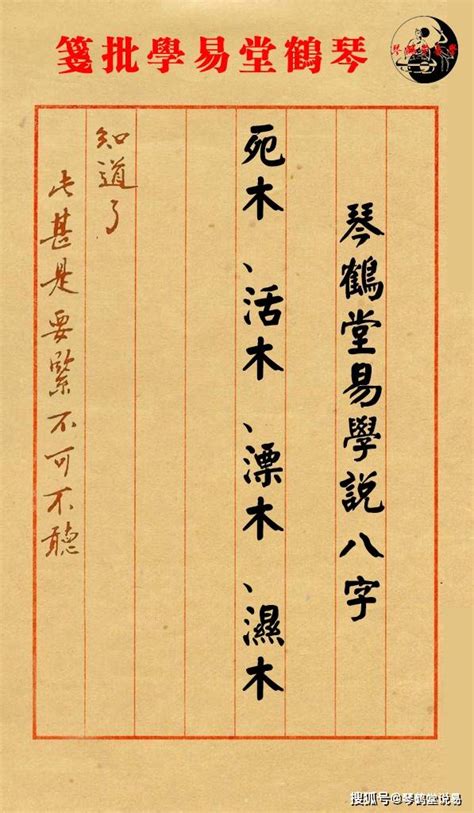 琴鶴堂易學批箋
琴鶴堂易學說八字
死木、活木、漂木、濕木
知道了
此甚是要緊不可不聽
搜狐号@琴鹤堂说易